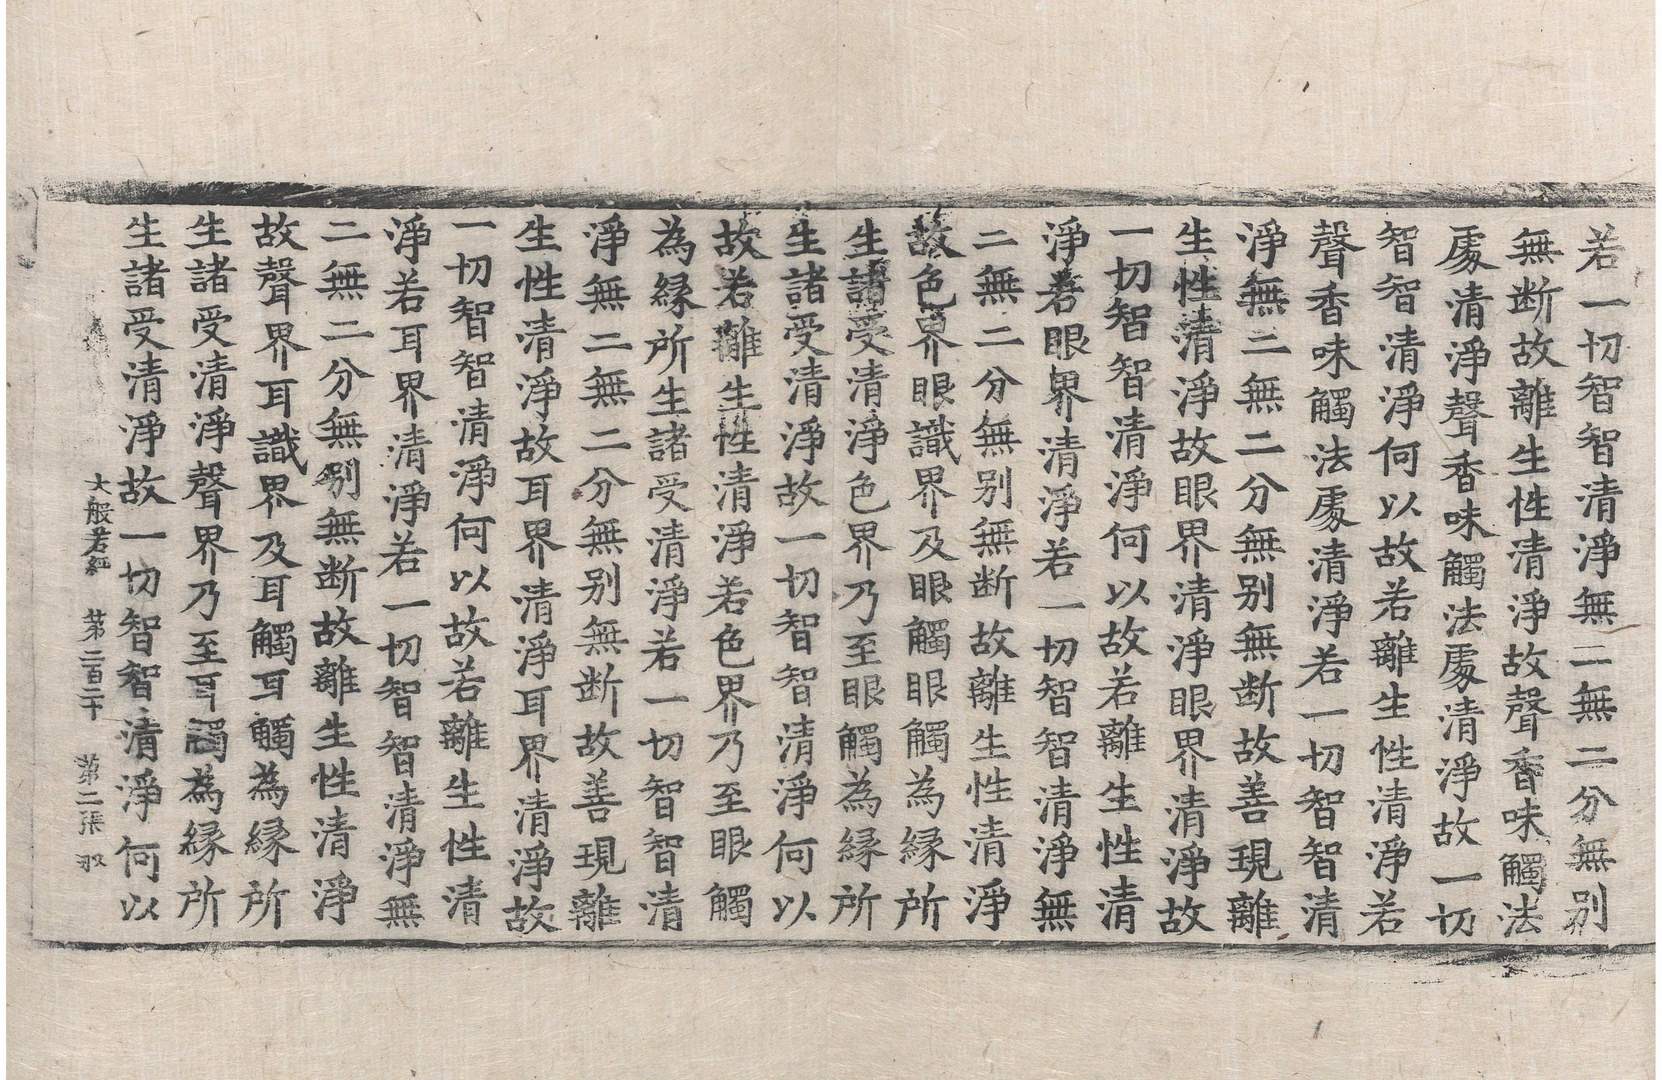 若一切智智清淨無二無二分無别
無断故離生性清淨故聲香味觸法
處清淨聲香味觸法處清淨故一切
智智清淨何以故若離生性清淨若
聲香味觸法處清淨若一切智智清
淨無二無二分無别無断故善現離
生性清淨故眼界清淨眼界清淨故
一切智智清淨何以故若離生性清
淨若眼界清淨若一切智智清淨無
二無二分無别無断故離生性清淨
故色界眼識界及眼觸眼觸為縁所
生諸受清淨色界乃至眼觸為縁所
生諸受清淨故一切智智清淨何以
故若離生性清淨若色界乃至眼觸
為縁所生諸受清淨若一切智智清
淨無二無二分無别無断故善現離
生性清淨故耳界清淨耳界清淨故
一切智智清淨何以故若離生性清
淨若耳界清淨若一切智智清淨無
二無二分無别無断故離生性清淨
故聲界耳識界及耳觸耳觸為縁所
生諸受清淨聲界乃至耳觸為縁所
生諸受清淨故一切智智清淨何以
大般若經 第二百二十 第二張